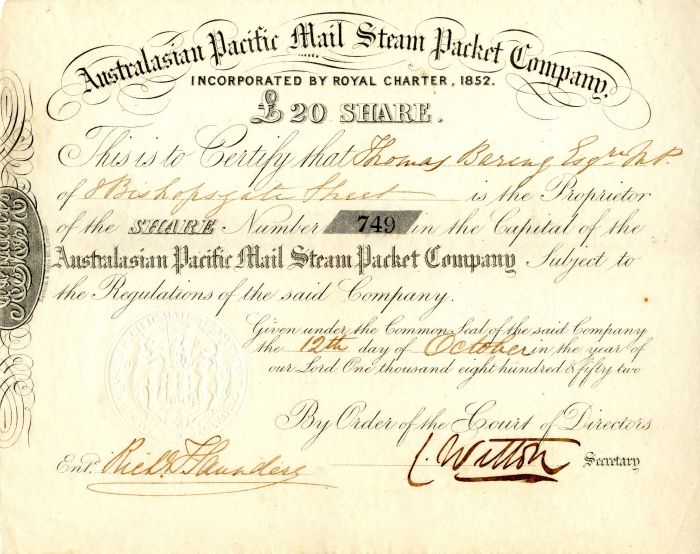 Australasian Pacific Mail Steam Packet Company,
INCORPORATED BY ROYAL CHARTER, 1852.
£20 SHARE.
This is to Certify that Thomas Baring Esqre M.P.
of 8 Bishopsgate Street is the Proprietor
of the SHARE Number 749 in the Capital of the
Australasian Pacific Mail Steam Packet Company Subject to
the Regulations of the said Company.
Given under the Common Seal of the said Company
the 12th day of October in the year of
our Lord One thousand eight hundred & fifty two
By Order of the Court of Directors
Entd. Richd Saunders
C. Witton Secretary